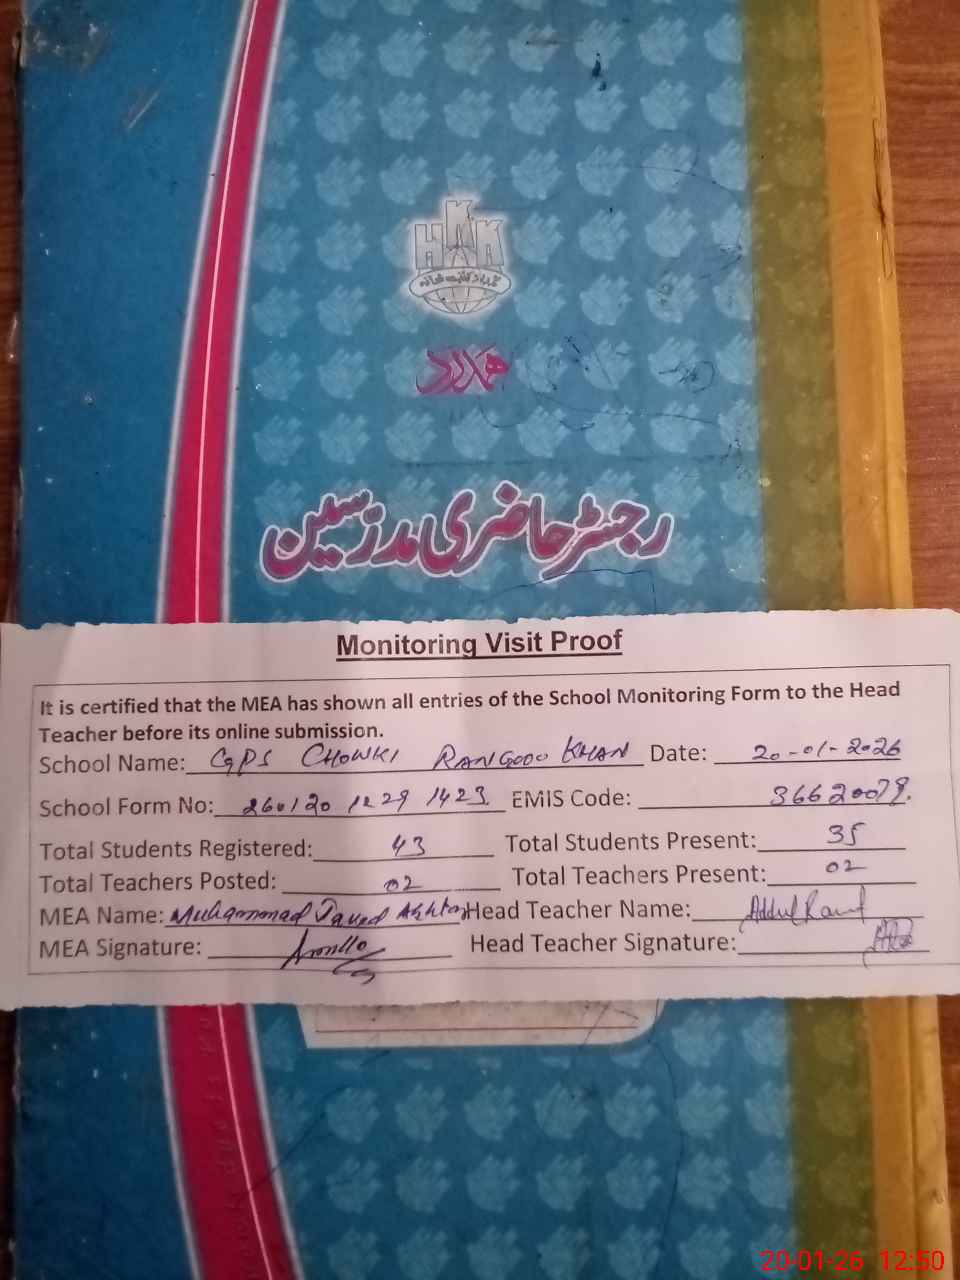 HKK
ہمدرد کتب خانہ
ہمدرد
رجسٹر حاضری مدرسین
Monitoring Visit Proof
It is certified that the MEA has shown all entries of the School Monitoring Form to the Head
Teacher before its online submission.
School Name: GPS CHOWKI RANGOOO KHAN Date: 20-01-2026
School Form No: 260120 1229 1423 EMIS Code: 36620079.
Total Students Registered: 43 Total Students Present: 35
Total Teachers Posted: 02 Total Teachers Present: 02
MEA Name: Muhammad Javed Akhtar Head Teacher Name: Abdul Rauf
MEA Signature: Head Teacher Signature:
20-01-26 12:50